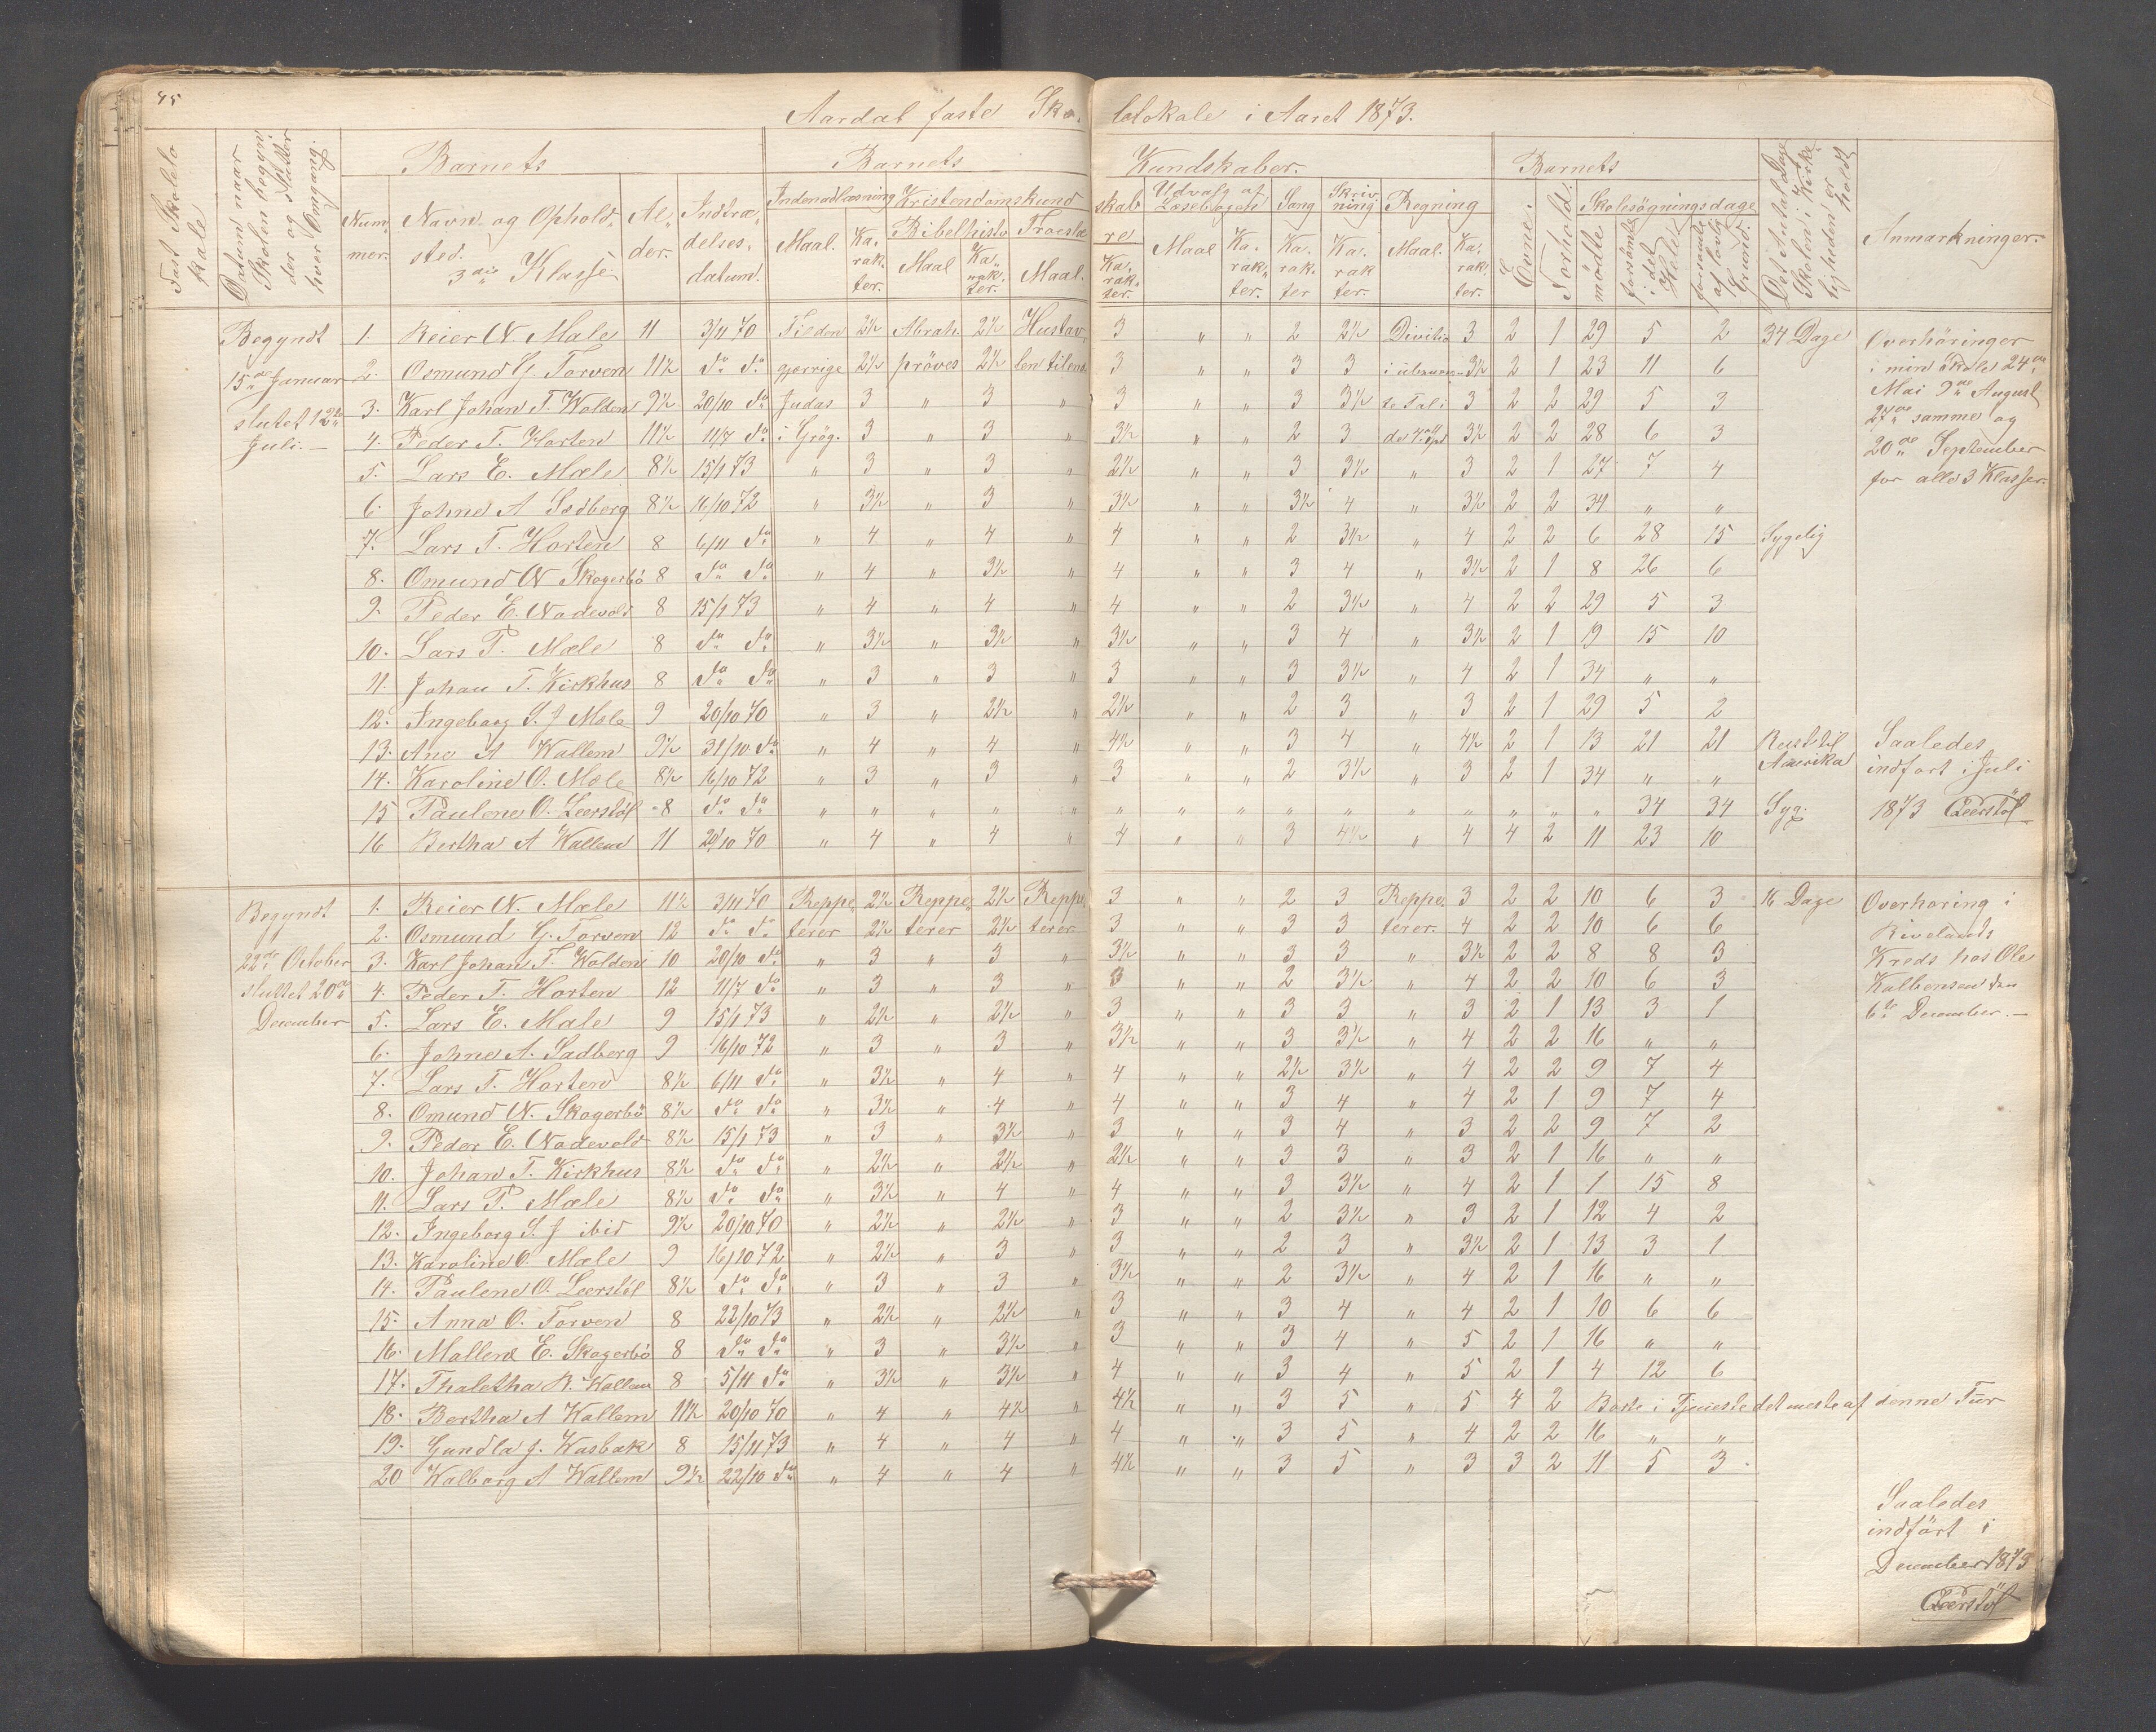 45
Aardal faste Sko- lelokale i Aaret 1873.
Fast Skolelokale
Datum naar Skolen begynder og slutter hver Omgang.
Barnets Barnets Kundskaber. Barnets
Nummer. Navn og Opholdssted. 3die Klasse Alder. Indtrædelsesdatum. Indenadlæsning Kristendomskundskab Udvalg af Læsebogen Sang Skrivning Regning Evne. Forhold. Skolesøgningsdage Anmærkninger.
Maal. Karakter. Bibelhisto Troeslære Maal Karakter. Maal. Karakter. Maal Karakter. Karakter Karakter. Maal. Karakter. mødte forsømte i det Hele forsømte af lovlig Grund.
Begyndt 15de Januar slutet 12te Juli.
1. Reier N. Mæle 11 3/11 70 Tilden 2½ Abrah. 2½ Hustav 3 " " 2 2½ Divitio 3 2 1 29 5 2 34 Dage
2. Osmund G. Torven 11½ do do gjerrige 2½ prøves 2½ len tilend 3 " " 3 3 3½ 2 1 23 11 6
3. Karl Johan T. Walden 9½ 20/10 do Judas 3 " 3 3 " " 3 3½ te Tal i 3 2 2 29 5 3
4. Peder T. Horten 11½ 11/7 do i Grøg. 3 " 3 " 3½ " " 2 3 3½ 2 2 28 6 3
5. Lars E. Mæle 8½ 15/1 73 " 3 " 3 " 2½ " " 3 3½ " 3 2 1 27 7 4
6. Johne A Sadberg 8½ 16/10 72 " 3½ " 3 " 3½ " " 3½ 4 " 3½ 2 2 34 " "
7. Lars T. Horten 8 6/11 do " 4 " 4 " 4 " " 2 3½ " 4 2 2 6 28 15 Sygelig
8. Omund N Skogerbø 8 do do " 4 " 3½ " 4 " " 3 4 " 3½ 2 1 8 26 6
9. Peder E. Nadevold 8 15/1 73 " 4 " 4 " 4 " " 2 3½ " 4 2 2 29 5 3
10. Lars P. Mæle 8 do do " 3½ " 3½ " 3½ " " 3 4 " 3½ 2 1 19 15 10
11. Johan T. Kirkhus 8 do do " 3 " 3 " 3 " " 3 3½ " 4 2 1 34 " "
12. Ingeborg S. J Mæle 9 20/10 70 " 3 " 2½ " 2½ " " 2 3 " 3 2 1 29 5 2
13. Ane A Wallem 9½ 31/10 do " 4 " 4 " 4½ " " 3 4 " 4½ 2 1 13 21 21 Reist til Amerika
14. Karoline O. Mæle 8½ 16/10 72 " 3 " 3 " 3 " " 2 3½ " 3 2 1 34 " "
15 Paulene O. Leerstøl 8 do do " " " " " " " " " " " " " " " 34 34 Syg.
16 Bertha A Wallem 11 20/10 70 " 4 " 4 " 4 " " 3 4½ " 4 4 2 11 23 10
Overhøringer
i min Skole 24de
Mai 9de August
27de samme og
20de September
for alle 3 Klasser.
Saaledes
indført i Juli
1873 Leerstøl
Begyndt 22de October sluttet 20de December
1. Reier N. Mæle 11½ 3/11 70 Reppe 2½ Reppe 2½ Reppe 3 " " 2 3 Reppe. 3 2 2 10 6 3 16 Dage
2. Osmund G. Torven 12 do do terer 2½ terer 2½ terer 3 " " 3 3 terer. 4 2 2 10 6 6
3. Karl Johan T. Walden 10 20/10 do " 3 " 3 " 3½ " " 3 3 " 3½ 2 2 8 8 3
4. Peder T. Horten 12 11/7 do " 3 " 3 " 3 " " 2 3½ " 4 2 2 10 6 3
5. Lars E. Mæle 9 15/1 73 " 2½ " 2½ " 3 " " 3 3 " 3 2 1 13 3 1
6. Johne A. Sadberg 9 16/10 72 " 3 " 3 " 3½ " " 3 3½ " 4 2 2 16 " "
7. Lars T. Horten 8½ 6/11 do " 3½ " 4 " 4 " " 2½ 3½ " 4 2 2 9 7 4
8. Omund N. Skogerbø 8½ do do " 3½ " 4 " 4 " " 3 4 " 4 2 1 9 7 4
9. Peder E. Nadevold 8½ 15/1 73 " 3 " 3½ " 3 " " 3 4 " 3 2 2 9 7 2
10. Johan T. Kirkhus 8½ do do " 2½ " 2½ " 2½ " " 3 3 " 3 2 1 16 " "
11. Lars P. Mæle 8½ do do " 3½ " 4 " 4 " " 3 3½ " 4 2 1 1 15 8
12. Ingeborg S. J ibid 9½ 20/10 70 " 2½ " 2½ " 3 " " 2 3½ " 3 2 1 12 4 2
13. Karoline O. Mæle 9 16/10 72 " 2½ " 3 " 3 " " 2 3 " 3½ 2 1 13 3 1
14. Paulene O. Leerstøl 8½ do do " 3 " 3 " 3½ " " 2 3½ " 4 2 1 16 " "
15. Anna O. Torven 8 22/10 73 " 2½ " 2½ " 3 " " 3 4 " 4 2 1 10 6 6
16. Mallene E. Skogerbø 8 do do " 3 " 3½ " 3 " " 3 4 " 5 2 1 16 " "
17. Thaletha R. Wallem 8 5/11 do " 3½ " 3½ " 4 " " 3 4 " 5 2 1 4 12 6
18. Bertha A Wallem 11½ 20/10 70 " 4 " 4½ " 4½ " " 3 5 " 5 4 2 Borte i Tjeneste det meste af denne Tur
19. Gundla J. Wasbak 8 15/11 73 " 4 " 4 " 4 " " 3 5 " 4 2 2 16 " "
20 Walborg A Wallem 9½ 22/10 do " 4 " 4 " 4½ " " 3 5 " 3 3 2 11 5 3
Overhøring i
Rivelands
Kreds hos Ole
Kalbensen den
6te December.
Saaledes
indført i
December 1873
Leerstøl